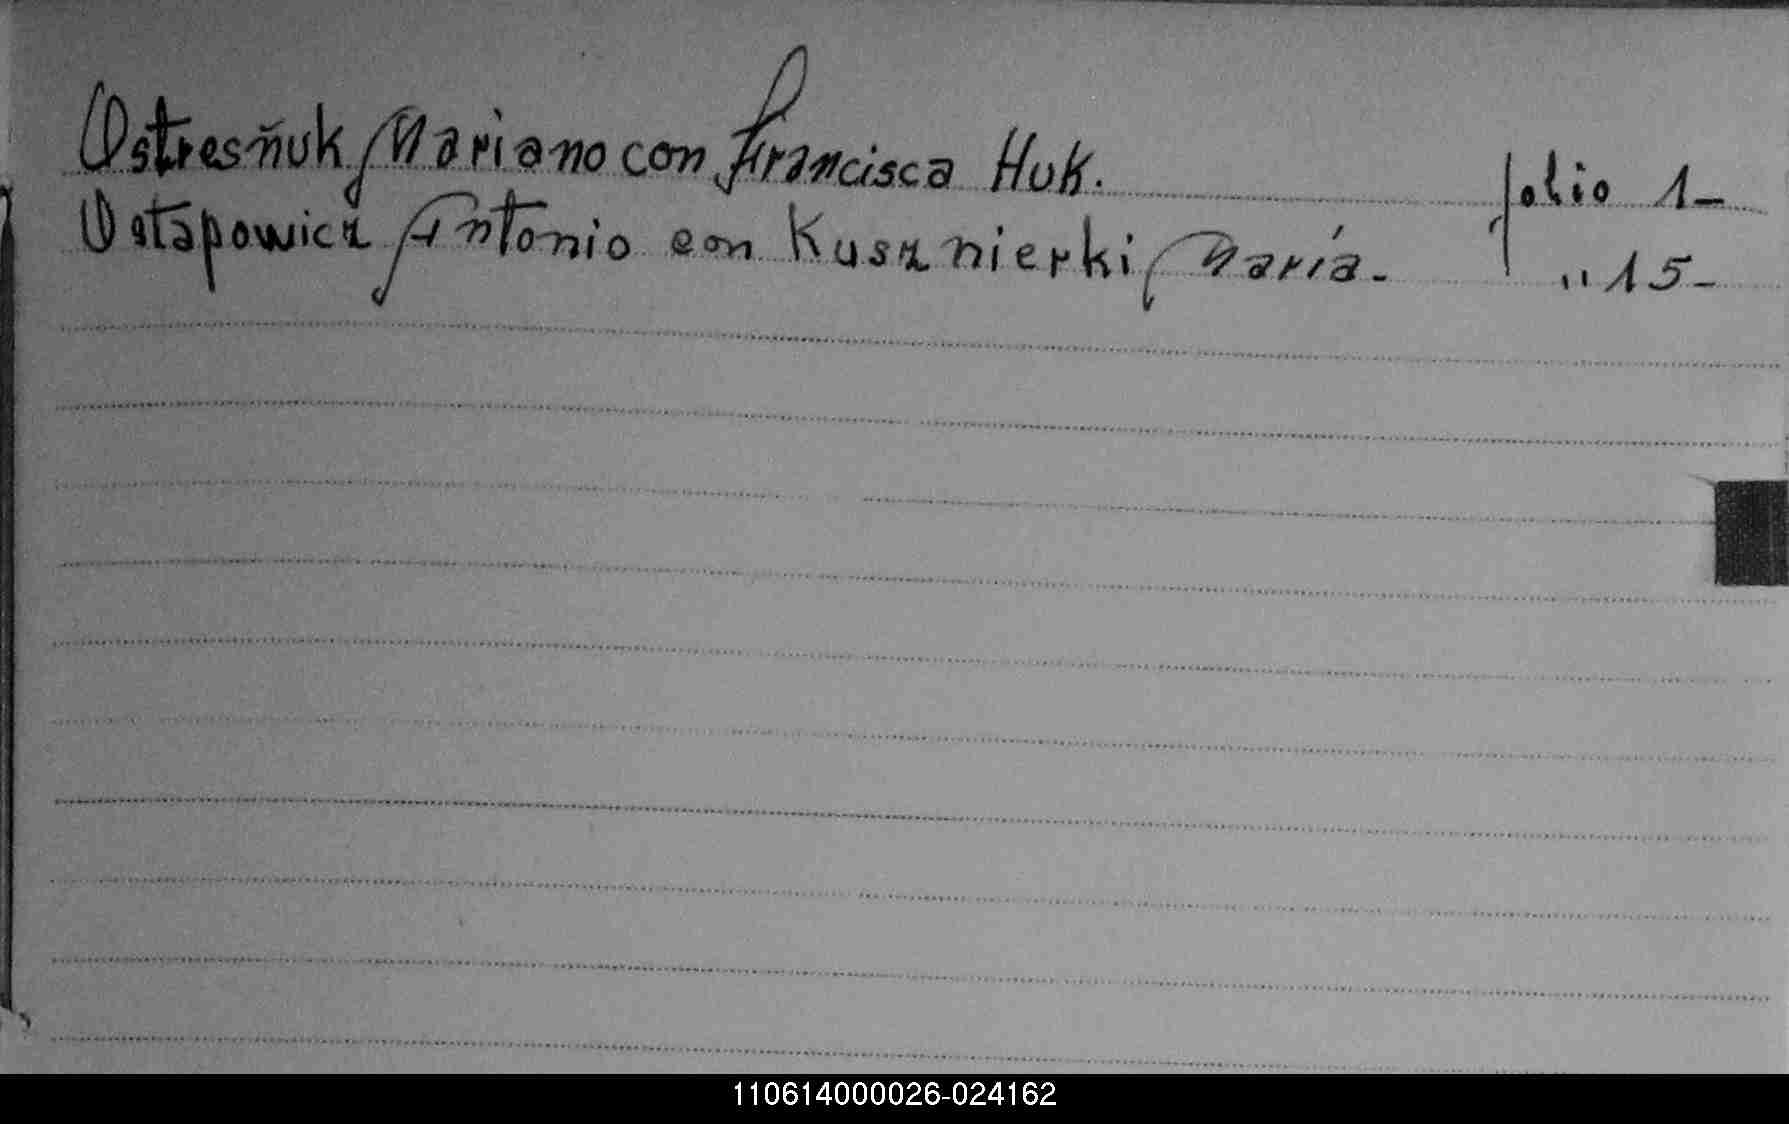 Ostresñuk Mariano con Francisca Huk. folio 1-
Ostapowicz Antonio con Kusznierki María. " 15-
110614000026-024162